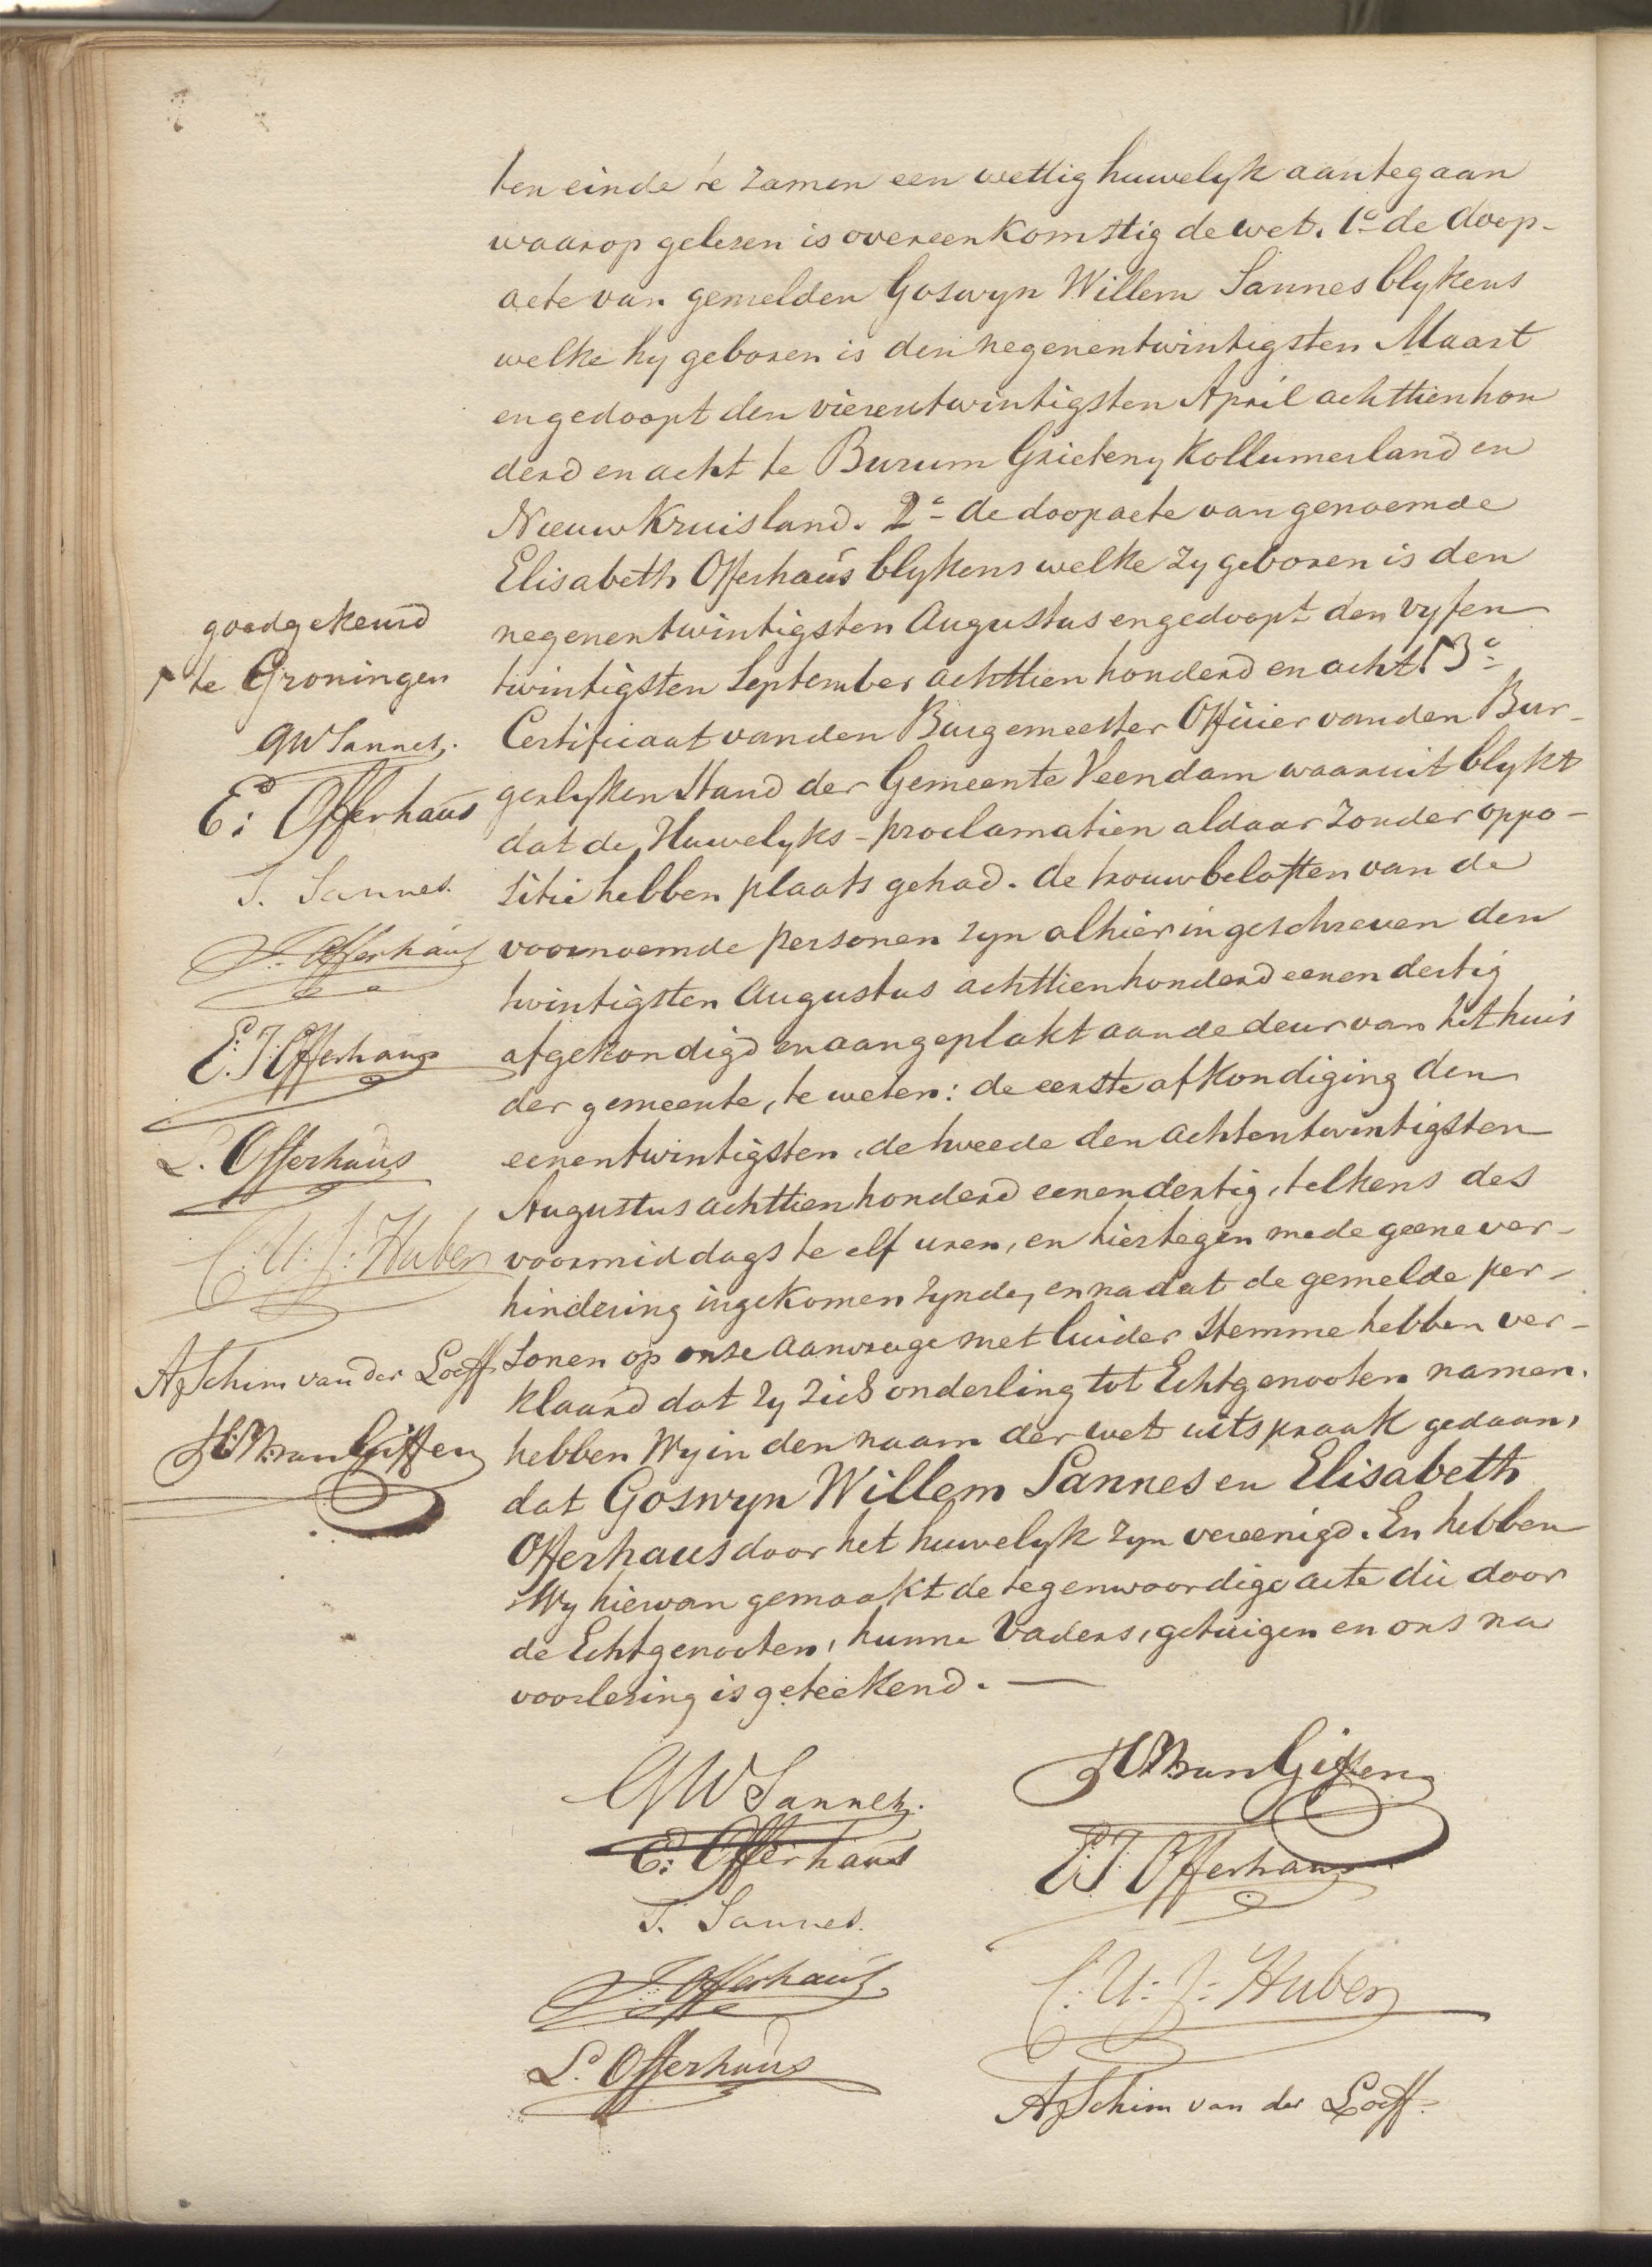 ten einde te zamen een wettig huwelyk aantegaan
waarop gelesen is overeenkomstig de wet. 1e de doop-
acte van gemelden Goswyn Willem Sannes blykens
welke hy geboren is den negenentwintigsten Maart
en gedoopt den vierentwintigsten April achttienhon
derd en acht te Burum Grieteny Kollumerland en
Nieuw Kruisland. 2e de doopacte van genoemde
Elisabeth Offerhaus blykens welke zy geboren is den
negenentwintigsten Augustus en gedoopt den vyfen
twintigsten September achttien honderd en acht ⌈3e
Certificaat van den Burgemeester Officier van den Bur-
gerlyken Stand der Gemeente Veendam waaruit blykt
dat de Huwelyks-proclamatien aldaar zonder oppo-
sitie hebben plaats gehad. de trouwbeloften van de
voornoemde personen zyn alhier ingeschreven den
twintigsten Augustus achttienhonderd eenendertig
afgekondigd en aangeplakt aan de deur van het huis
der gemeente, te weten: de eerste afkondiging den
eenentwintigsten, de tweede den achtentwintigsten
Augustus achttienhonderd eenendertig, telkens des
voormiddags te elf uren, en hiertegen mede geene ver-
hindering ingekomen zynde, en nadat de gemelde per-
sonen op onze aanvrage met luider stemme hebben ver-
klaard dat zy zich onderling tot Echtgenooten namen.
hebben Wy in den naam der wet uitspraak gedaan,
dat Goswyn Willem Sannes en Elisabeth
Offerhaus door het huwelyk zyn vereenigd. En hebben
Wy hiervan gemaakt de tegenwoordige acte die door
de Echtgenooten, hunne Vaders, getuigen en ons na
voorlezing is geteekend. —
goedgekeurd
⌈ te Groningen
GW Sannes.
Ed: Offerhaus
T. Sannes.
J. Offerhaus
E. J. Offerhaus
L. Offerhaus
C: U: J: Huber
A Schim van der Loeff
HM van Giffen
GW Sannes.
Ed: Offerhaus
T. Sannes.
J. Offerhaus
L. Offerhaus
HM van Giffen
E J Offerhaus
C: U: J: Huber
A Schim van der Loeff.